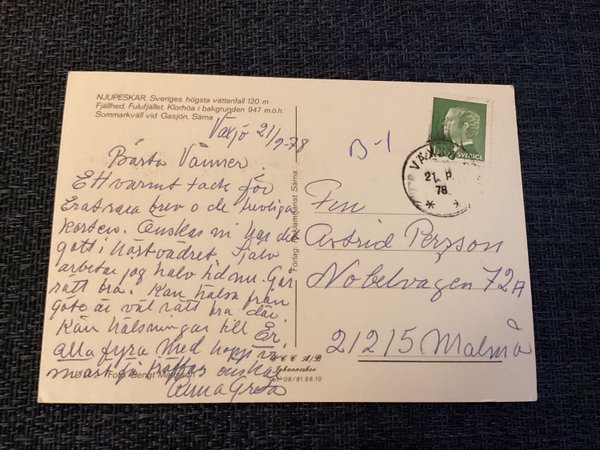 NJUPESKÄR. Sveriges högsta vattenfall 120 m
Fjällhed. Fulufjället. Klorhöa i bakgrunden 947 m.ö.h.
Sommarkväll vid Gasjön. Särna
Växjö 21/9-78
Bästa Vänner.
Ett varmt tack för
Erat rara brev o de trevliga
korten. Önskas ni har det
gott i höstvädret. Själv
arbetar jag halv tid nu. Går
rätt bra. Kan hälsa från
Göte är väl rätt bra där.
Kära hälsningar till Er
alla fyra Med hopp vi
snart få träffas önskar
Anna Greta
Foto: Bengt
Särna
B-1
SVERIGE
VÄXJÖ
21. 9.
78
Fru
Astrid Persson
Nobelvägen 72A
21215 Malmö
A/B
Johanneshov
08/81.88 10